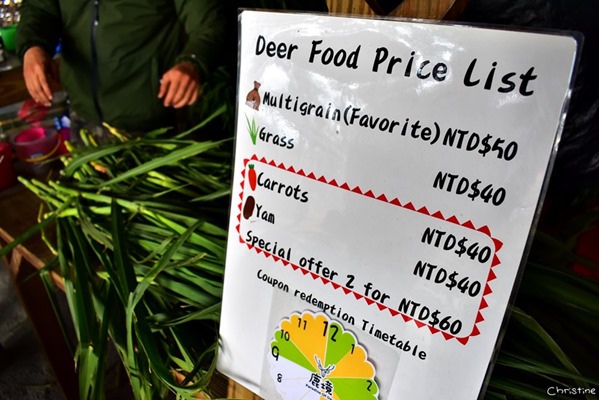 Deer Food Price List
Multigrain(Favorite) NTD$50
Grass NTD$40
Carrots NTD$40
Yam NTD$40
Special offer 2 for NTD$60
Coupon redemption Timetable
12
11
1
10
2
9
8
鹿境
Christine